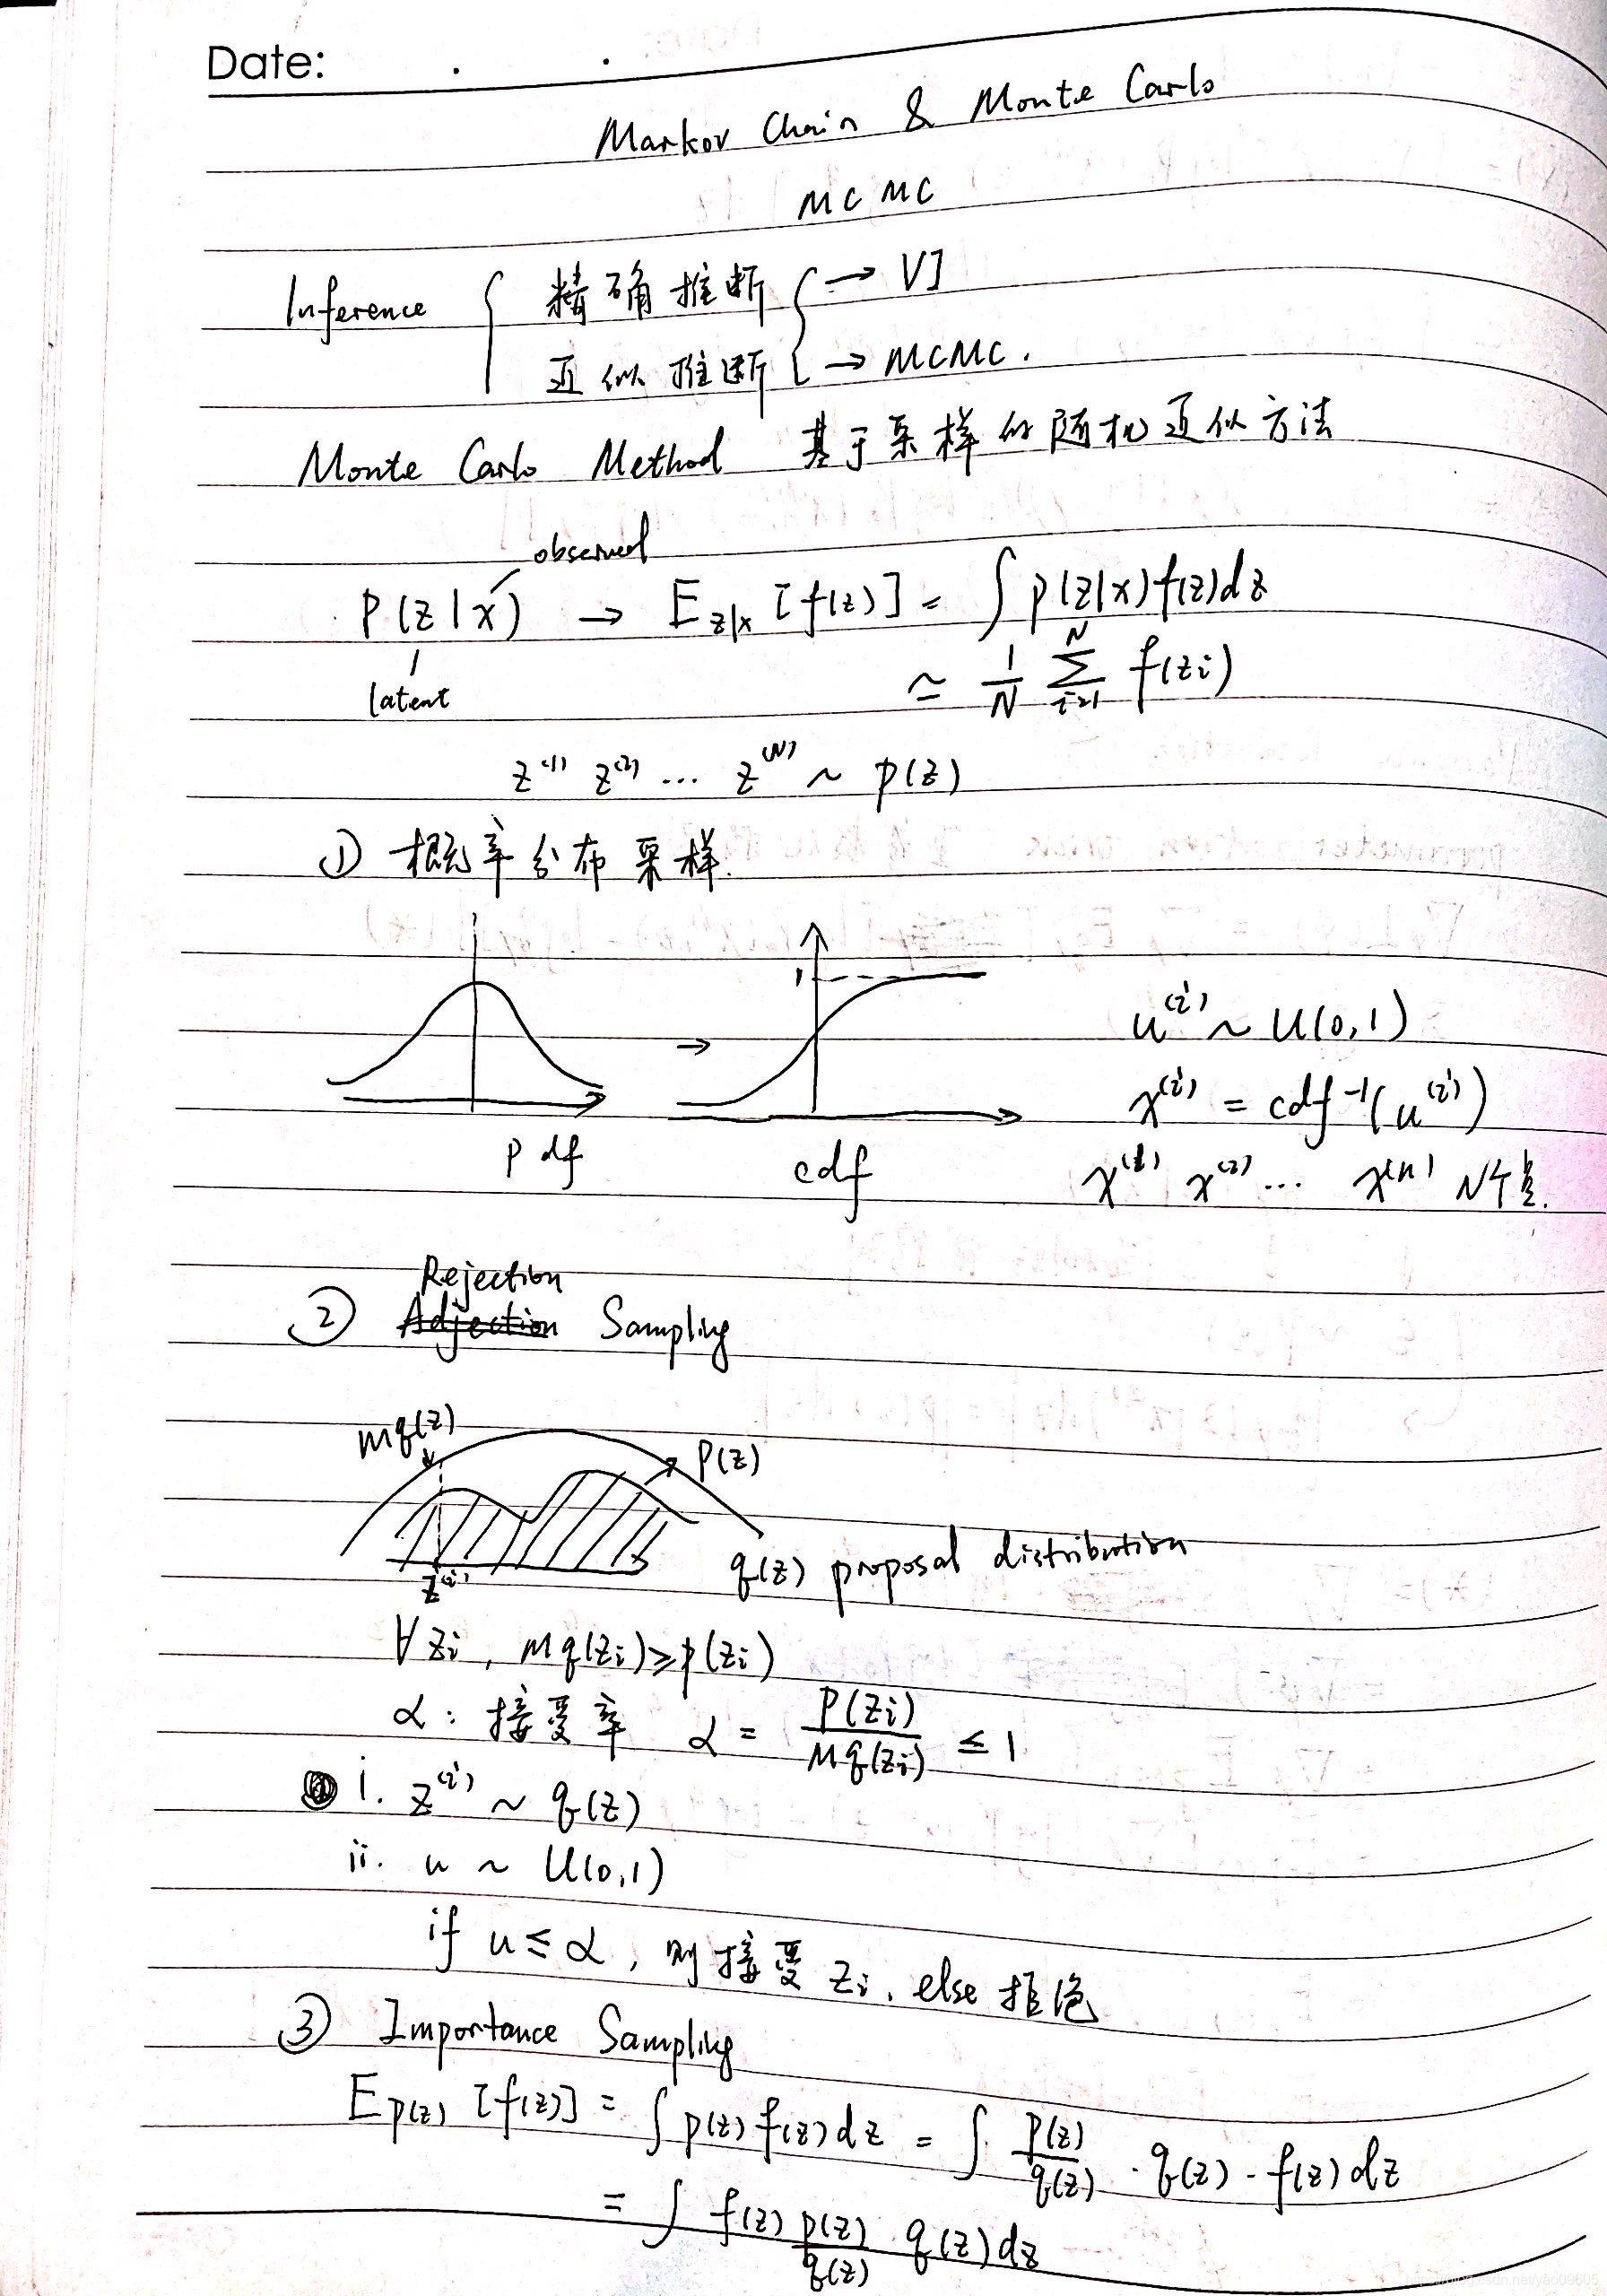 Date:
Markov Chain & Monte Carlo
MCMC
Inference { 精确推断 { → VI
近似推断 → MCMC.
Monte Carlo Method 基于采样的随机近似方法
observed
P(z|x) → E_{z|x}[f(z)] = ∫ p(z|x) f(z) dz
latent
≃ 1/N ∑_{i=1}^{N} f(z_i)
z^{(1)} z^{(2)} ... z^{(N)} ~ p(z)
① 概率分布采样.
1
→
pdf
cdf
u^{(i)} ~ U(0,1)
x^{(i)} = cdf^{-1}(u^{(i)})
x^{(1)} x^{(2)} ... x^{(N)} N个点.
Rejection
② Adjection Sampling
Mq(z)
P(z)
z^{(i)}
q(z) proposal distribution
∀ z_i, Mq(z_i) ≥ p(z_i)
α: 接受率 α = P(z_i)/Mq(z_i) ≤ 1
i. z^{(i)} ~ q(z)
ii. u ~ U(0,1)
if u ≤ α, 则接受 z_i, else 拒绝
③ Importance Sampling
E_{p(z)}[f(z)] = ∫ p(z) f(z) dz = ∫ p(z)/q(z) · q(z) · f(z) dz
= ∫ f(z) p(z)/q(z) · q(z) dz